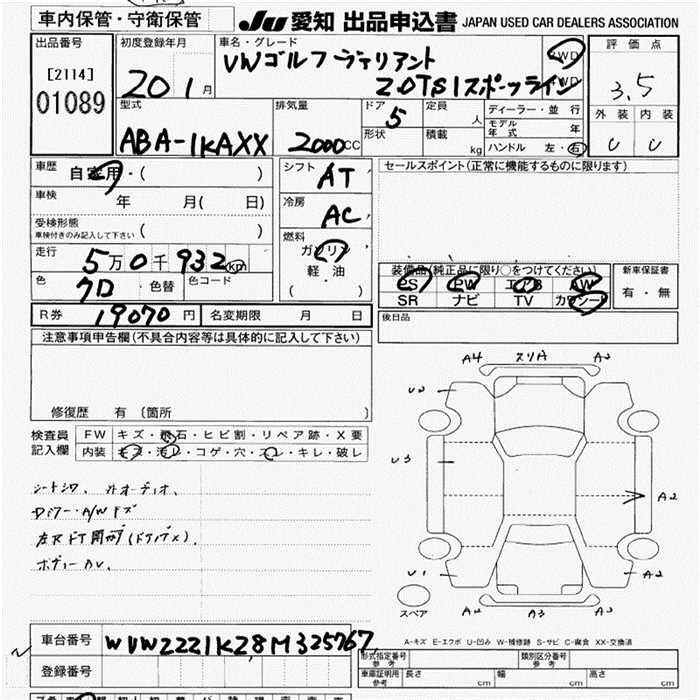 車内保管・守衛保管
JU 愛知 出品申込書 JAPAN USED CAR DEALERS ASSOCIATION
出品番号 初度登録年月 車名・グレード 評価点
[2114] 20 1月 VWゴルフヴァリアント 2WD
01089 2.0TSIスポーツライン 4WD 3.5
型式 排気量 ドア 5 定員 人 ディーラー・並行 外装 内装
ABA-1KAXX 2000CC 形状 積載 kg モデル年式 年 C C
ハンドル 左・右
車歴 自家用・( ) シフト AT セールスポイント(正常に機能するものに限ります)
車検 年 月( 日) 冷房 AC
受検形態
車検付きのみ記入して下さい ( )
燃料 ガソリン
走行 5万0千932km 軽・油
装備品(純正品に限り○をつけてください) 新車保証書
色 7D 色替 色コード ( ・ ) PS PW エアB AW 有・無
SR ナビ TV カワシート
R券 19070円 名変期限 月 日 後日品
注意事項申告欄(不具合内容等は具体的に記入して下さい)
A4 スリA A2
修復歴 有 〔箇所 〕
検査員 FW キズ・飛石・ヒビ割・リペア跡・X要
記入欄 内装 キズ・汚レ・コゲ・穴・スレ・キレ・破レ
U3
A2
シートシワ、
A/Wキズ
ボディーUV、
U1 A2
スペア A2 A3
車台番号 WVWZZZ1KZ8M325767
A-キズ E-エクボ U-凹み W-補修跡 S-サビ C-腐食 XX-交換済
登録番号 形式指定番号 参考 類別区分番号 参考
車庫証明用 参考 長さ cm 幅 cm 高さ cm